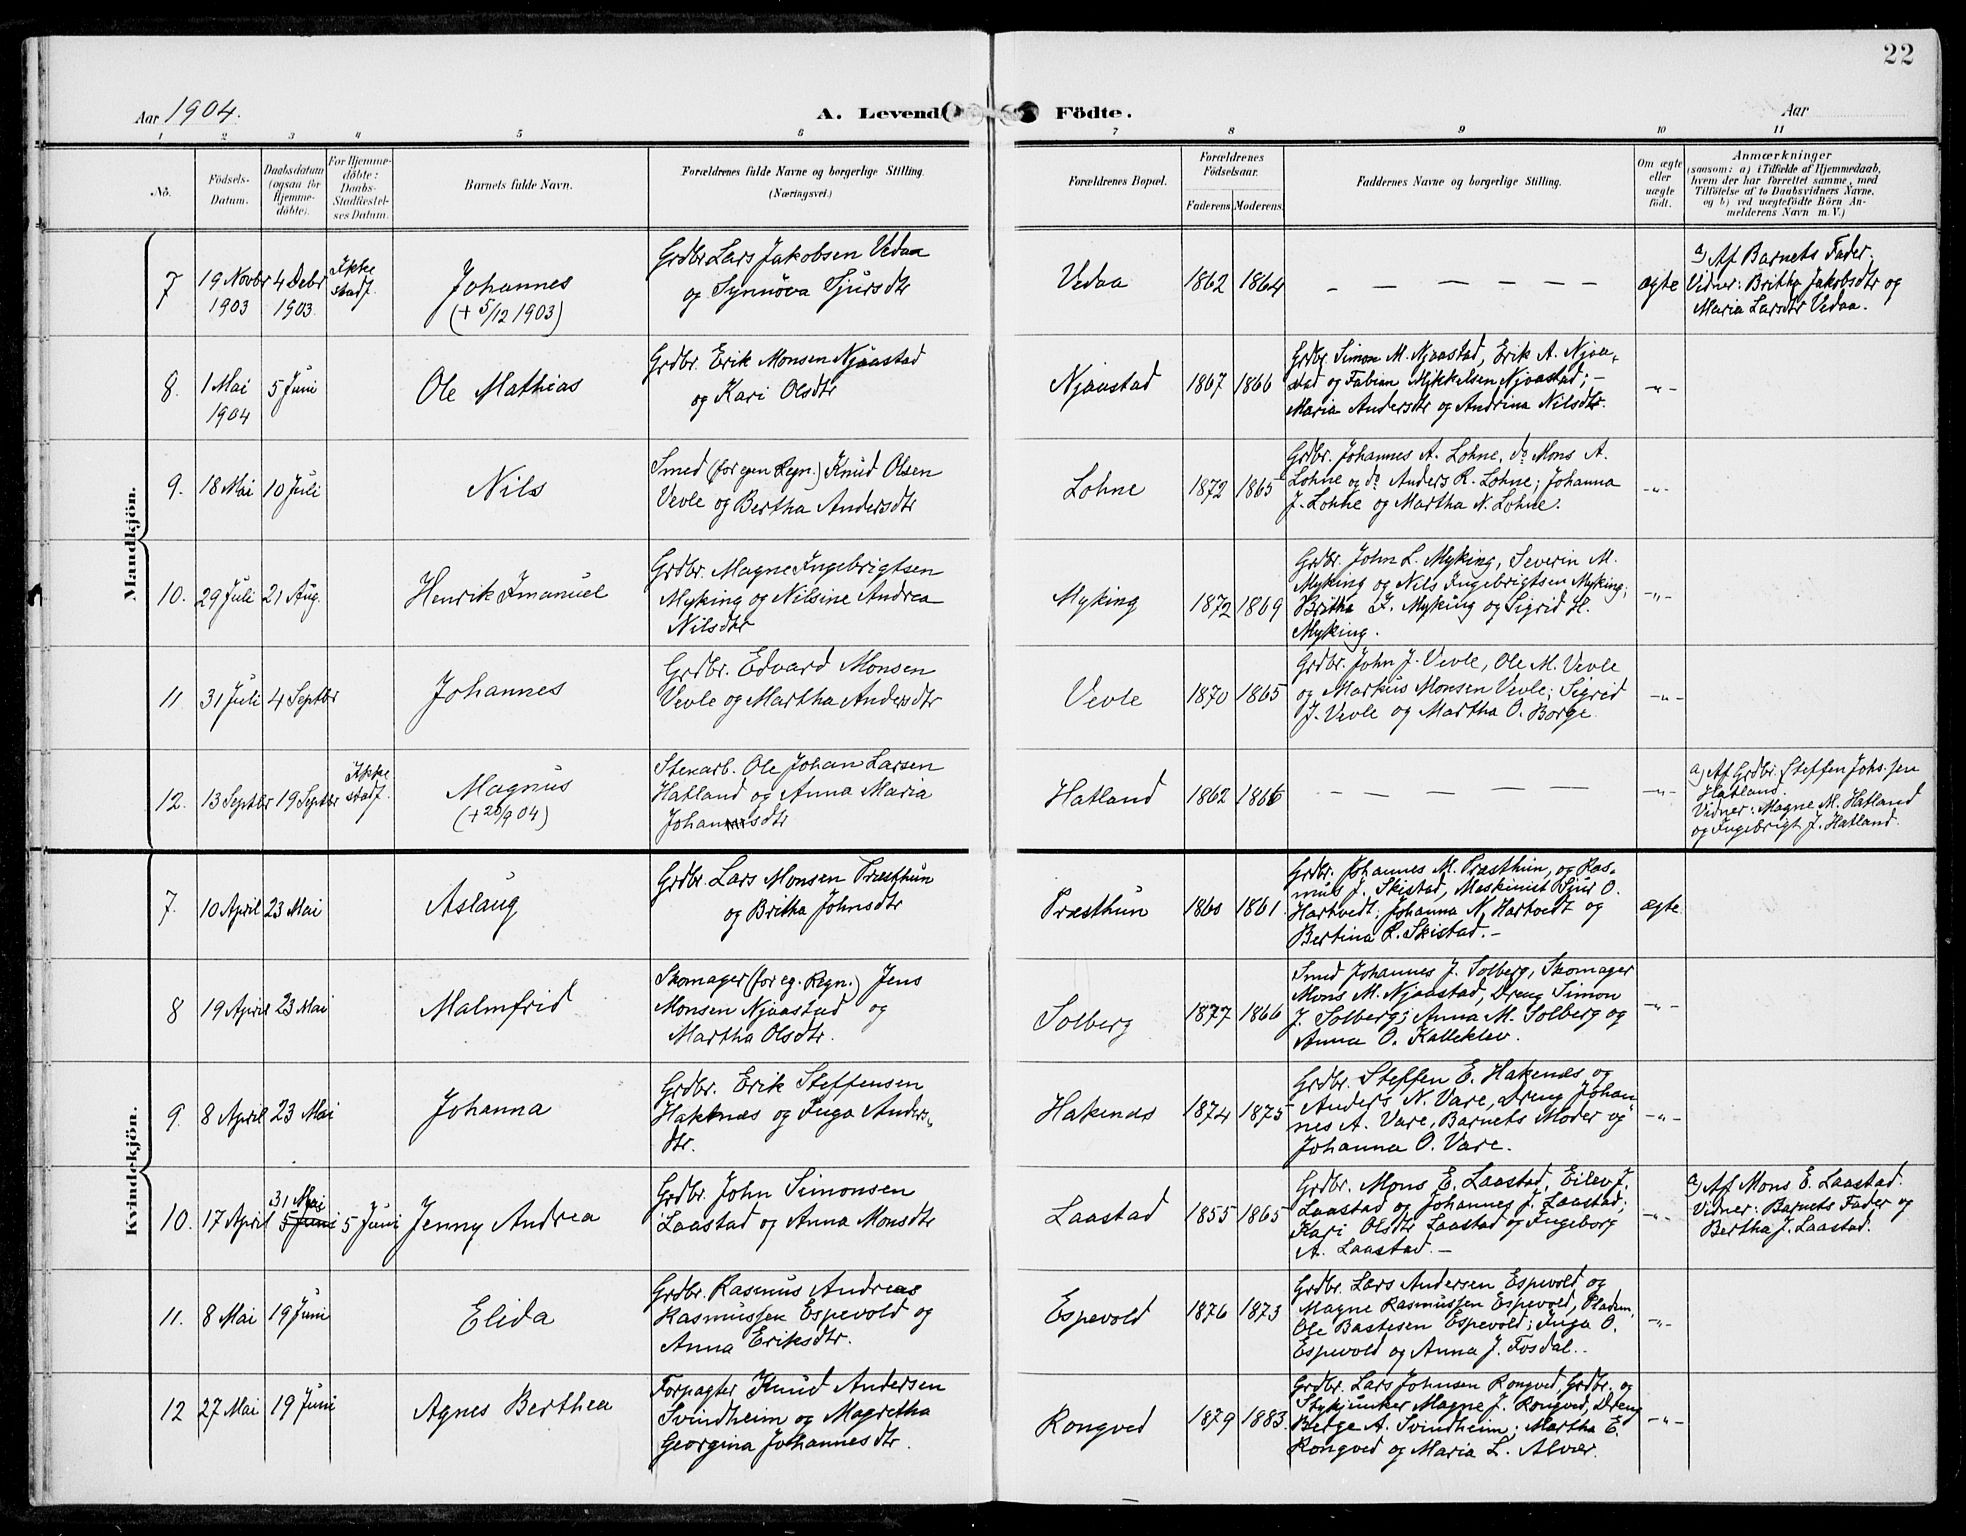 22
Aar 1904.
A. Levende Födte.
Aar
1 2 3 4 5 6 7 8 9 10 11
No.
Födsels-
Datum.
Daabsdatum
(ogsaa for
Hjemme-
döbte).
For Hjemme-
döbte:
Daabs-
Stadfæstel-
ses Datum.
Barnets fulde Navn.
Forældrenes fulde Navne og borgerlige Stilling.
(Næringsvei.)
Forældrenes Bopæl.
Forældrenes
Födselsaar.
Faderens. Moderens.
Faddernes Navne og borgerlige Stilling.
Om ægte
eller
uægte
födt.
Anmærkninger
(saasom: a) i Tilfælde af Hjemmedaab,
hvem der har forrettet samme, med
Tilföielse af to Daabsvidners Navne,
og b) ved uægtefödte Börn An-
melderens Navn m. V.)
Mandkjön.
7
19 Novbr
1903
4 Debr
1903.
Ikke
stadf.
Johannes
(+ 5/12 1903)
Grdbr. Lars Jakobsen Vedaa
og Synnöva Sjursdtr
Vedaa
1862
1864
— — — — — —
ægte
a) Af Barnets Fader.
Vidner: Britha Jakobsdtr og
Maria Larsdtr Vedaa.
8.
1 Mai
1904
5 Juni
Ole Mathias
Grdbr. Erik Monsen Njaastad
og Kari Olsdtr
Njaastad
1867
1866
Grdbr. Simon M. Njaastad, Erik A. Njaa-
stad og Fabian Mykkelsen Njaastad; —
Maria Andersdtr og Andrina Nilsdtr.
—"—
9.
18 Mai
10 Juli
Nils
Smed (for egen Regn.) Knud Olsen
Vevle og Bertha Andersdtr
Lohne
1872
1865
Grdbr. Johannes A. Lohne, do Mons A.
Lohne og do Anders R. Lohne; Johanna
J. Lohne og Martha N. Lohne.
—"—
10.
29 Juli
21 Aug.
Henrik Imanuel
Grdbr. Magne Ingebrigtsen
Myking og Nilsine Andrea
Nilsdtr
Myking
1872
1869
Grdbr. John L. Myking, Severin M.
Myking og Nils Ingebrigtsen Myking;
Britha I. Myking og Sigrid H.
Myking.
—"—
11.
31 Juli
4 Septbr
Johannes
Grdbr. Edvard Monsen
Vevle og Martha Andersdtr
Vevle
1870
1865
Grdbr. John J. Vevle, Ole M. Vevle
og Markus Monsen Vevle; Sigrid
J. Vevle og Martha O. Borge.
—"—
12.
13 Septbr
19 Septbr
Ikke
stadf.
Magnus
(+ 26/9 04)
Stenarb. Ole Johan Larsen
Hatland og Anna Maria
Johannesdtr
Hatland
1862
1866
— — — — — —
—"—
a) Af Grdbr. Steffen Johs.sen
Hatland.
Vidner: Magne M. Hatland
og Ingebrigt J. Hatland.
Kvindekjön.
7.
10 April
23 Mai
Aslaug
Grdbr. Lars Monsen Præsthun
og Britha Johnsdtr
Præsthun
1860
1861
Grdbr. Johannes M. Præsthun, og Ras-
mus J. Skistad, Maskinist Sjur O.
Hartvedt; Johanna N. Hartvedt og
Bertina R. Skistad. —
ægte.
8
19 April
23 Mai
Malmfrid
Skomager (for eg. Regn.) Jens
Monsen Njaastad og
Martha Olsdtr.
Solberg
1877
1866
Smed Johannes J. Solberg, Skomager
Mons M. Njaastad, Dreng Simon
J. Solberg; Anna M. Solberg og
Anna O. Kalleklev.
—"—
9.
8 April
23 Mai
Johanna
Grdbr. Erik Steffensen
Hakenæs og Inga Anders-
dtr.
Hakenæs
1874
1875
Grdbr. Steffen E. Hakenæs og
Anders N. Vare, Dreng Johan
nes A. Vare, Barnets Moder og
Johanna O. Vare.
—"—
10.
17 April
31 Mai
5 Juni
5 Juni
Jenny Andrea
Grdbr. John Simonsen
Laastad og Anna Monsdtr
Laastad
1855
1865
Grdbr. Mons E. Laastad, Eilev J.
Laastad og Johannes J. Laastad;
Kari Olsdtr Laastad og Ingeborg
A. Laastad. —
—"—
a) Af Mons E. Laastad.
Vidner: Barnets Fader og
Bertha J. Laastad.
11.
8 Mai
19 Juni
Elida
Grdbr. Rasmus Andreas
Rasmussen Espevold og
Anna Eriksdtr.
Espevold
1876
1873
Grdbr. Lars Andersen Espevold og
Magne Rasmussen Espevold, Pladsm.
Ole Bastesen Espevold; Inga O.
Espevold og Anna J. Fosdal.
—"—
12
27 Mai
19 Juni
Agnes Berthea
Forpagter Knud Andersen
Svindheim og Magretha
Georgina Johannesdtr.
Rongved
1879
1883.
Grdbr. Lars Johnsen Rongved, Grdbr. og
Stykjunker Magne J. Rongved, Dreng
Belge A. Svindheim; Martha E.
Rongved og Maria L. Alvær.
—"—